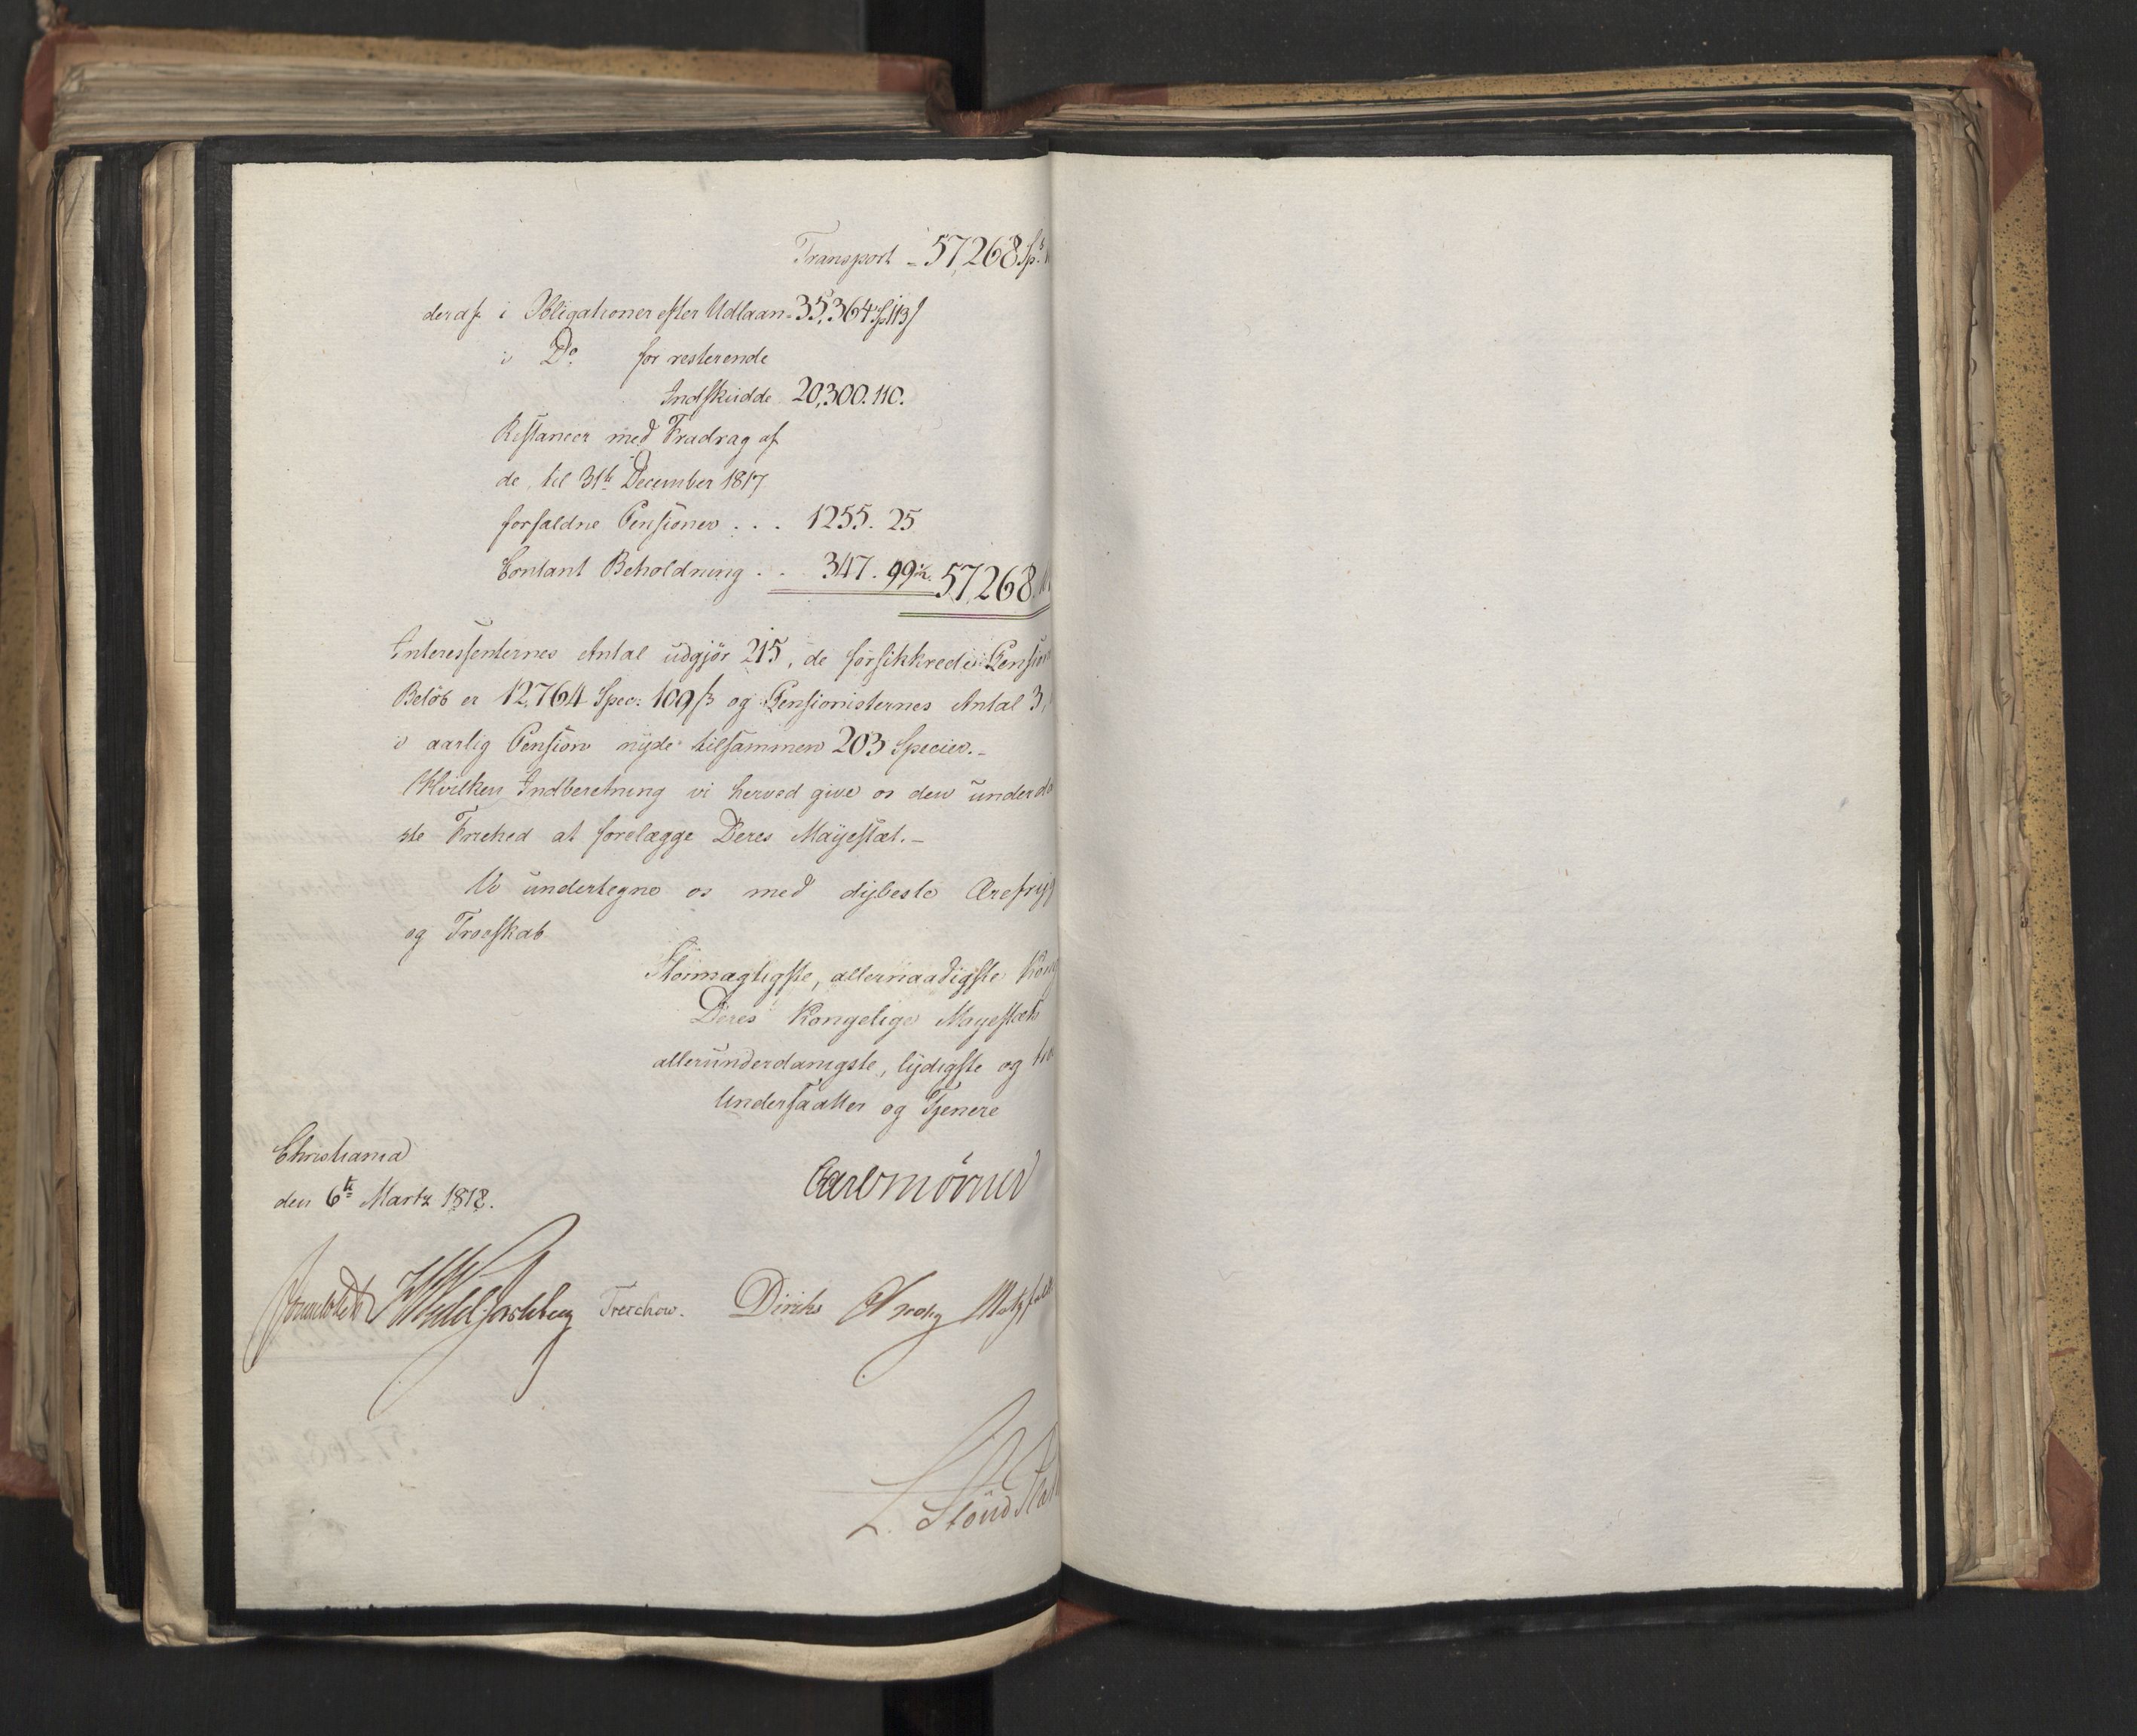 Transport - 57,268 Sp
deraf i Obligationer efter Udlaan - 35,364 Sp 113 ß
i Do for resterende
Indskudde 20,300. 110.
Restancer med Fradrag af
de til 31te December 1817
forfaldne Pensioner . . . 1255. 25
Contant Beholdning . . 347. 99½. 57,268.
Interessenternes Antal udgjør 215, de forsikkrede Pension
Beløb er 12,764 Spec: 109 ß og Pensionisternes Antal 3,
i aarlig Pension nyde tilsammen 203 Species. -
Hvilken Indberetning vi herved give os den underda
ste Friehed at forelægge Deres Mayestæt. -
Vi undertegne os med dybeste Ærefryg
og Troeskab
Stormægtigste, allernaadigste Kong
Deres Kongelige Mayestæts
allerunderdanigste, lydigste og tro
Undersaatter og Tjenere
Christiania
den 6te Martz 1818.
Carl Mörner
Sommerhielm HWedel Jarlsberg Treschow. Diriks Motzfeldt
L. Stoud Plat